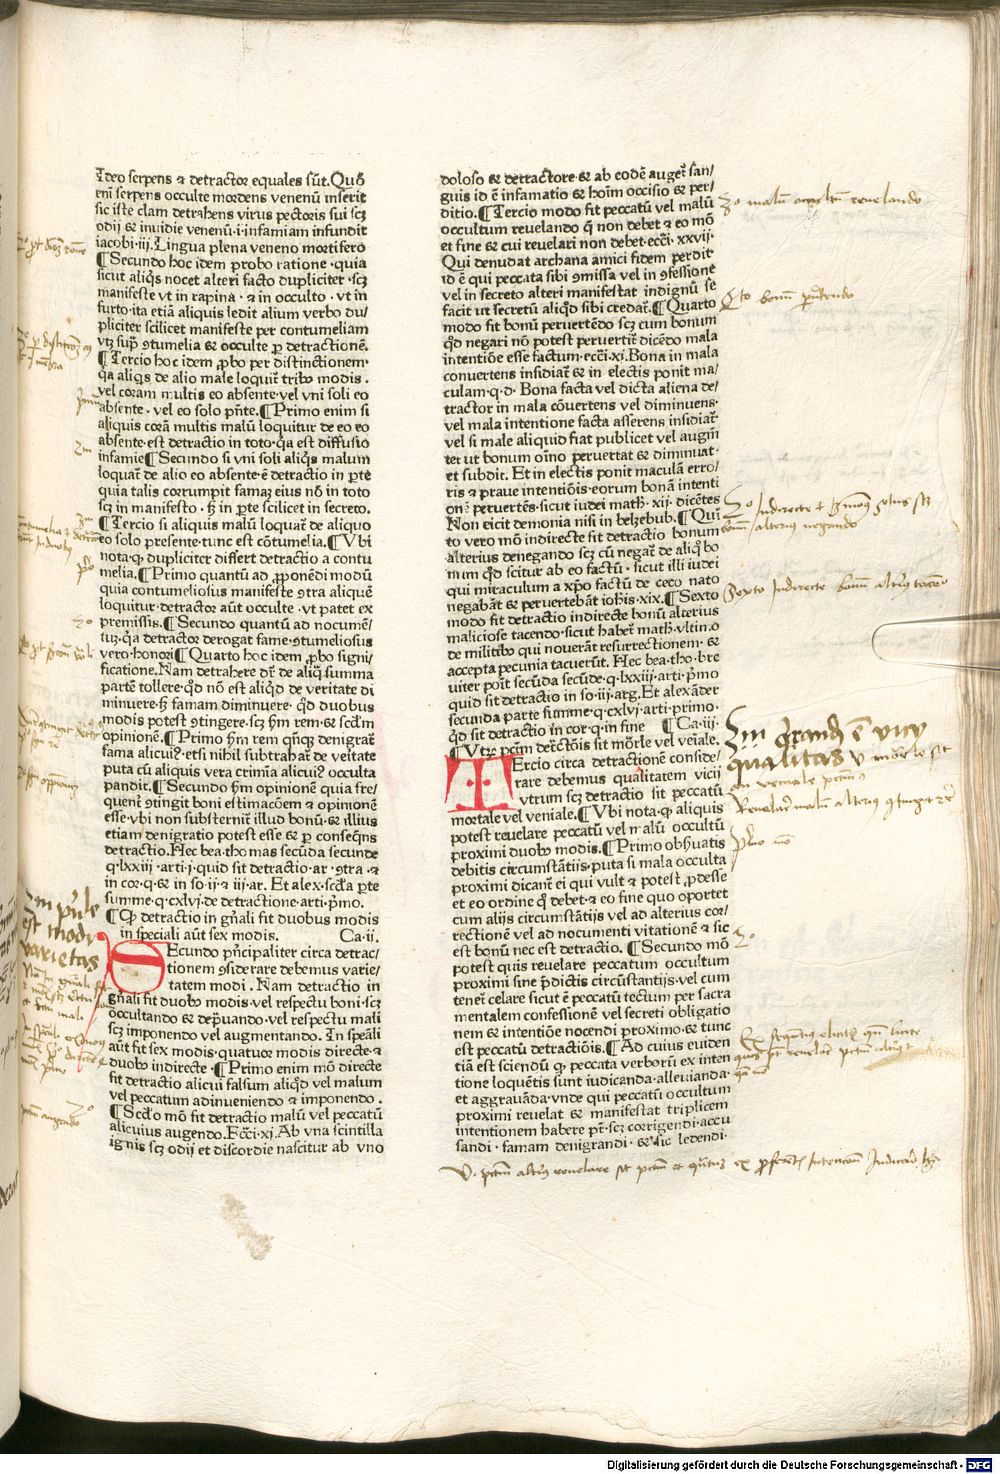 Ideo serpens ⁊ detractor equales sūt. Quō
eni serpens occulte mordens venenū inserit
sic iste clam detrahens virus pectoris sui scꝫ
odij & inuidie venenū·i·infamiam infundit
iacobi·iij. Lingua plena veneno mortifero
¶Secundo hoc idem probo ratione·quia
sicut aliq̄s nocet alteri facto dupliciter·scꝫ
manifeste vt in rapina·⁊ in occulto·vt in
furto·ita etiā aliquis ledit alium verbo du/
pliciter scilicet manifeste per contumeliam
vtꝫ sup̄ ꝯtumelia & occulte ꝑ detractionē.
¶Tercio hoc idem ꝓbo per distinctionem·
q̄a aliq̄s de alio male loquit̄ tribꝰ modis.
vel coram multis eo absente·vel vni soli eo
absente·vel eo solo pn̄te.¶Primo enim si
aliquis corā multis malū loquitur de eo eo
absente·est detractio in toto·q̄a est diffusio
infamie¶Secundo si vni soli aliq̄s malum
loquat̄ de alio eo absente·ē detractio in ꝑte
quia talis corrumpit famaꝫ eius nō in toto
scꝫ in manifesto·sꝫ in ꝑte scilicet in secreto.
¶Tercio si aliquis malū loquat̄ de aliquo
eo solo presente·tunc est cōtumelia.¶Vbi
nota·ꝙ dupliciter differt detractio a contu
melia.¶Primo quantū ad ꝓponēdi modū
quia contumeliosus manifeste ꝯtra aliquē
loquitur·detractor aūt occulte·vt patet ex
premissis.¶Secundo quantū ad nocumē/
tuꝫ·q̄a detractor derogat fame·ꝯtumeliosus
vero·honori¶Quarto hoc idem ꝓbo signi/
ficatione. Nam detrahere dr̄ de aliq̄ summa
partē tollere·qd̄ nō est aliqd̄ de veritate di
minuere·sꝫ famam diminuere·qd̄ duobus
modis potest ꝯtingere·scꝫ ẜm rem·& scd̄m
opinionē.¶Primo ẜm rem qn̄cꝫ denigrat̄
fama alicuiꝰ·etsi nihil subtrahat̄ de veritate
puta cū aliquis vera crimīa alicuiꝰ occulta
pandit.¶Secundo ẜm opinionē quia fre/
quent̄ ꝯtingit boni estimacōem & opinionē
esse·vbi non substernit̄ illud bonū·& illius
etiam denigratio potest esse & ꝑ conseq̄ns
detractio. Hec bea·thomas secūda secunde
q·lxxiij·arti·j·quid sit detractio·ar·ꝯtra·⁊
in cor·q·& in so·ij·⁊ iij·ar. Et alex·scd̄a ꝑte
summe·q·cxlvj·de detractione·arti·pmo.
¶Ꝙ detractio in gn̄ali fit duobus modis
in speciali aūt sex modis. Ca·ij.
SEcundo pn̄cipaliter circa detrac/
tionem ꝯsiderare debemus varie/
tatem modi. Nam detractio in
gn̄ali fit duobꝰ modis·vel respectu boni·scꝫ
occultando & dep̄uando·vel respectu mali
scꝫ imponendo vel augmentando. In speāli
aūt fit sex modis·quatuor modis directe·⁊
duobꝰ indirecte·¶Primo enim mō directe
fit detractio alicui falsum aliqd̄ vel malum
vel peccatum adinueniendo & imponendo.
¶Scd̄o mō fit detractio malū vel peccatū
alicuius augendo. Ecci·xj. Ab vna scintilla
ignis scꝫ odij et discordie nascitur ab vno
doloso & detractore·& ab eodē auget̄ san/
guis id ē infamatio & hoim occisio & per/
ditio.¶Tercio modo fit peccatū vel malū
occultum reuelando q̄ non debet ⁊ eo mō
et fine & cui reuelari non debet·ecci·xxvij·
Qui denudat archana amici fidem perdit
id ē qui peccata sibi ꝯmissa vel in ꝯfessione
vel in secreto alteri manifestat indignū se
facit ut secretū aliqd̄ sibi credat̄.¶Quarto
modo fit bonū peruertēdo scꝫ cum bonum
qd̄ negari nō potest peruertit̄ dicēdo mala
intentiōe esse factum·ecci·xi. Bona in mala
conuertens insidiat̄ & in electis ponit ma/
culam·q·d· Bona facta vel dicta aliena de/
tractor in mala cōuertens vel diminuens·
vel mala intentione facta asserens insidiat̄
vel si male aliquid fiat publicet vel augm̄
tet ut bonum oīno peruertat & diminuat·
et subdit. Et in electis ponit maculā erro/
ris ⁊ praue intentiōis·eorum bonā intenti
onē peruertēs·sicut iudei math·xij·dicētes
Non eicit demonia nisi in belzebub.¶Qui
to vero mō indirecte fit detractio bonum
alterius denegando scꝫ cū negat̄ de aliq̄ bo
num qd̄ scitur ab eo factū·sicut illi iudei
qui miraculum a xp̄o factū de ceco nato
negabāt & peruertebāt iohis·xix.¶Sexto
modo fit detractio indirecte bonū alterius
maliciose tacendo·sicut habet̄ math·vltim·o
de militibꝰ qui nouerāt resurrectionem·&
accepta pecunia tacuerūt. Hec bea·tho·bre
uiter poīt secūda secūde·q·lxxiij·arti·pmo
quid sit detractio in so·iij·arg. Et alexāder
secunda parte summe·q·cxlvj·arti·primo.
qd̄ sit detractio in cor·q·in fine ¶Ca·iij·
¶Vtꝝ pctm̄ det̄ctōis sit mōrle vel veīale.
TErcio circa detractionē conside/
rare debemus qualitatem vicij
vtrum scꝫ detractio sit peccatū
mortale vel veniale.¶Vbi nota·ꝙ aliquis
potest reuelare peccatū vel malū occultū
proximi duobꝰ modis.¶Primo obẜuatis
debitis circumstātijs·puta si mala occulta
proximi dicant̄ ei qui vult ⁊ potest ꝓdesse
et eo ordine qd̄ debet·⁊ eo fine quo oportet
cum alijs circumstātijs vel ad alterius cor/
rectionē vel ad nocumenti vitationē ⁊ sic
est bonū nec est detractio. ¶Secundo mō
potest quis reuelare peccatum occultum
proximi sine p̄dictis circūstantijs·vel cum
tenet̄ celare sicut ē peccatū tectum per sacra
mentalem confessionē vel secreti obligatio
nem & intentiōe nocendi proximo·& tunc
est peccatū detractiōis.¶Ad cuius euiden
tiā est sciendū ꝙ peccata verborū ex inten
tione loquētis sunt iudicanda·alleuianda·
et aggrauāda·vnde qui peccatū occultum
proximi reuelat & manifestat triplicem
intentionem habere pt̄·scꝫ corrigendi·accu
sandi·famam denigrandi·& sic ledendi·
3o malū occultū reuelando
4to bonū peruertendo
bonū alterius negando
Sexto Indirecte bonū alteriꝰ tacendo
3m p̄le
est modi
varietas
qualitas
Digitalisierung gefördert durch die Deutsche Forschungsgemeinschaft - DFG